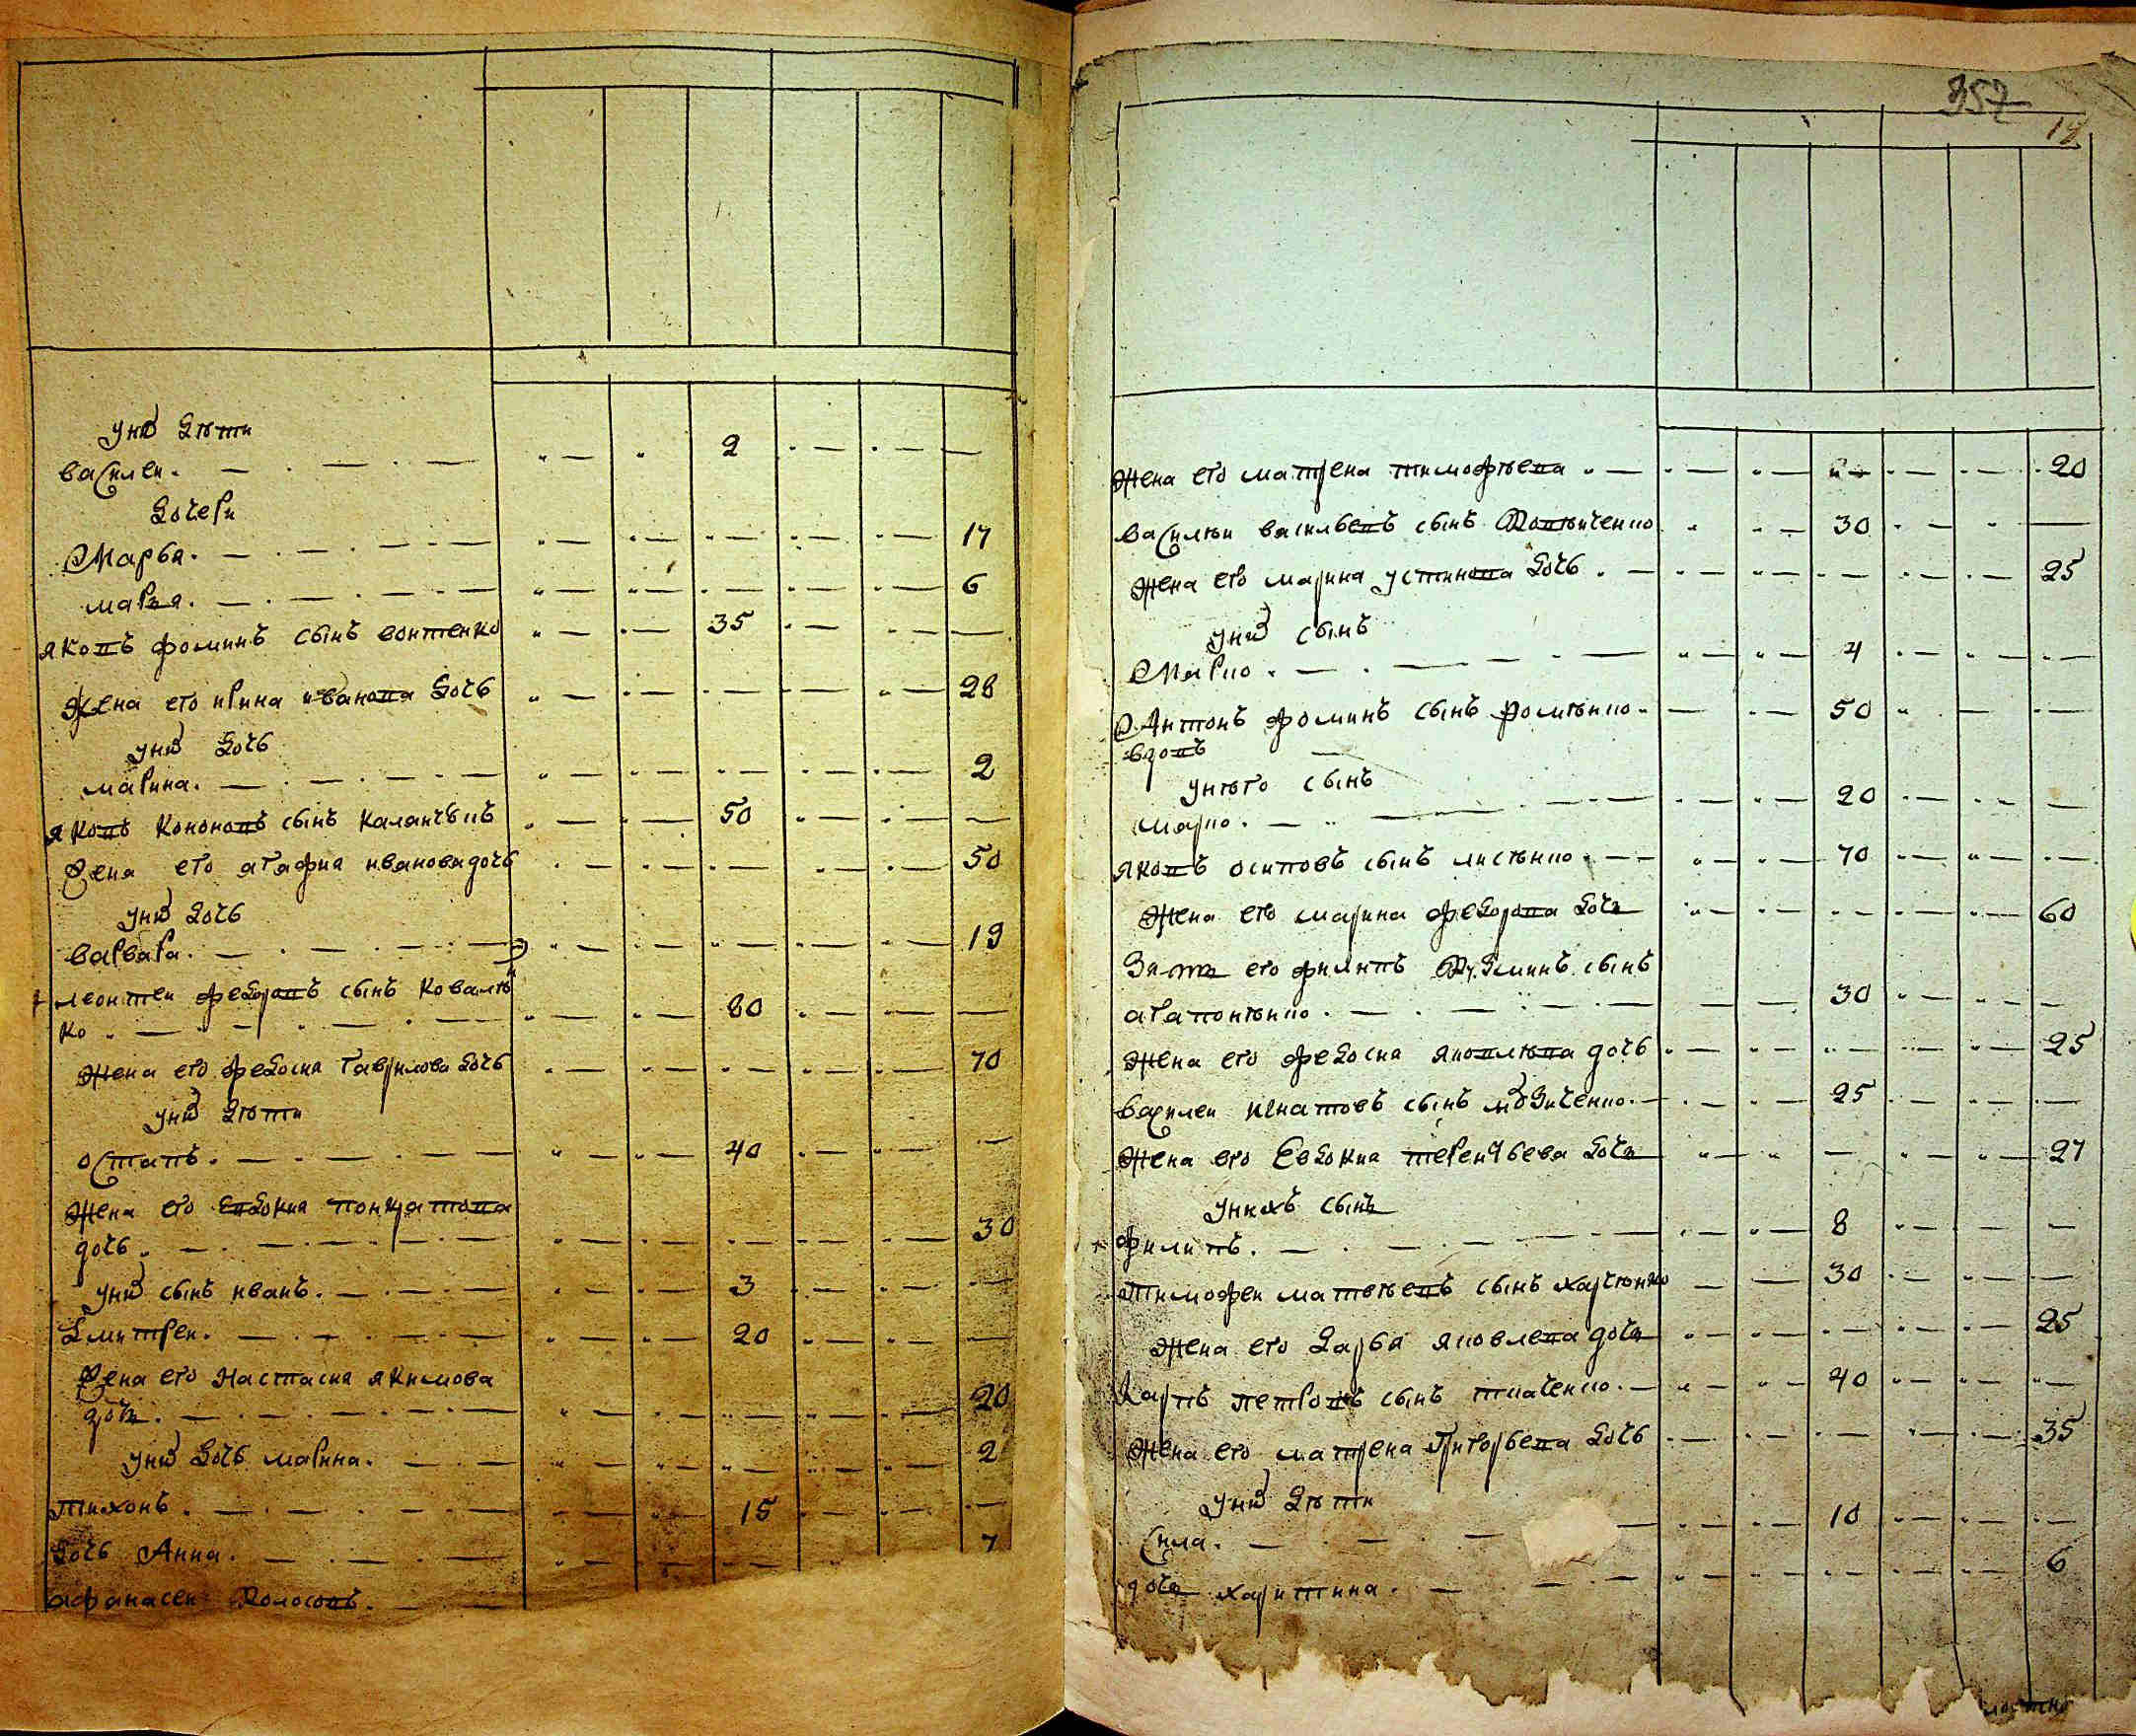 у них дѣти
василеи. 2
дочери
Марѳа. 17
маръя. 6
яковъ фоминъ сынъ воитенко 35
жена его ирина иванова дочь 28
у них дочь
марина. 2
яковъ кононовъ сынъ 50
жена его агафиа иванова дочь 50
у них дочь
варвара. 19
леонтеи федоровъ сынъ ковалѣн
ко. 80
жена его федосиа гаврилова дочь 70
у них дѣти
остапъ. 40
жена его евдокиа понкратова
дочь. 30
у них сынъ иванъ. 3
дмитреи. 20
жена его настасиа якимова
дочъ. 20
у них дочь марина. 2
тихонъ. 15
дочь Анна. 7
афанасеи колосовъ.
357
18
жена его матрена тимофѣева 20
василѣи васильевъ сынъ 30
жена его марина устинова дочь 25
у них сынъ
Марко. 4
Антонъ фоминъ сынъ ромѣнко 50
вдовъ
у нѣго сынъ
марко. 20
яковъ осиповъ сынъ листѣнко 70
жена его марина федорова дочъ 60
Зятъ его филипъ кузминъ сынъ
агапонѣнко. 30
жена его федосиа яковлѣва дочь 25
василеи игнатовъ сынъ 25
жена его Евдокиа терентьева дочъ 27
у нихъ сынъ
филипъ. 8
тимофеи матвѣевъ сынъ харчѣнко 30
жена его дарья яковлева дочъ 25
карпъ петровъ сынъ ткаченко. 40
жена его матрена григорьева дочь 35
у них дѣти
сила. 10
дочъ харитина. 6